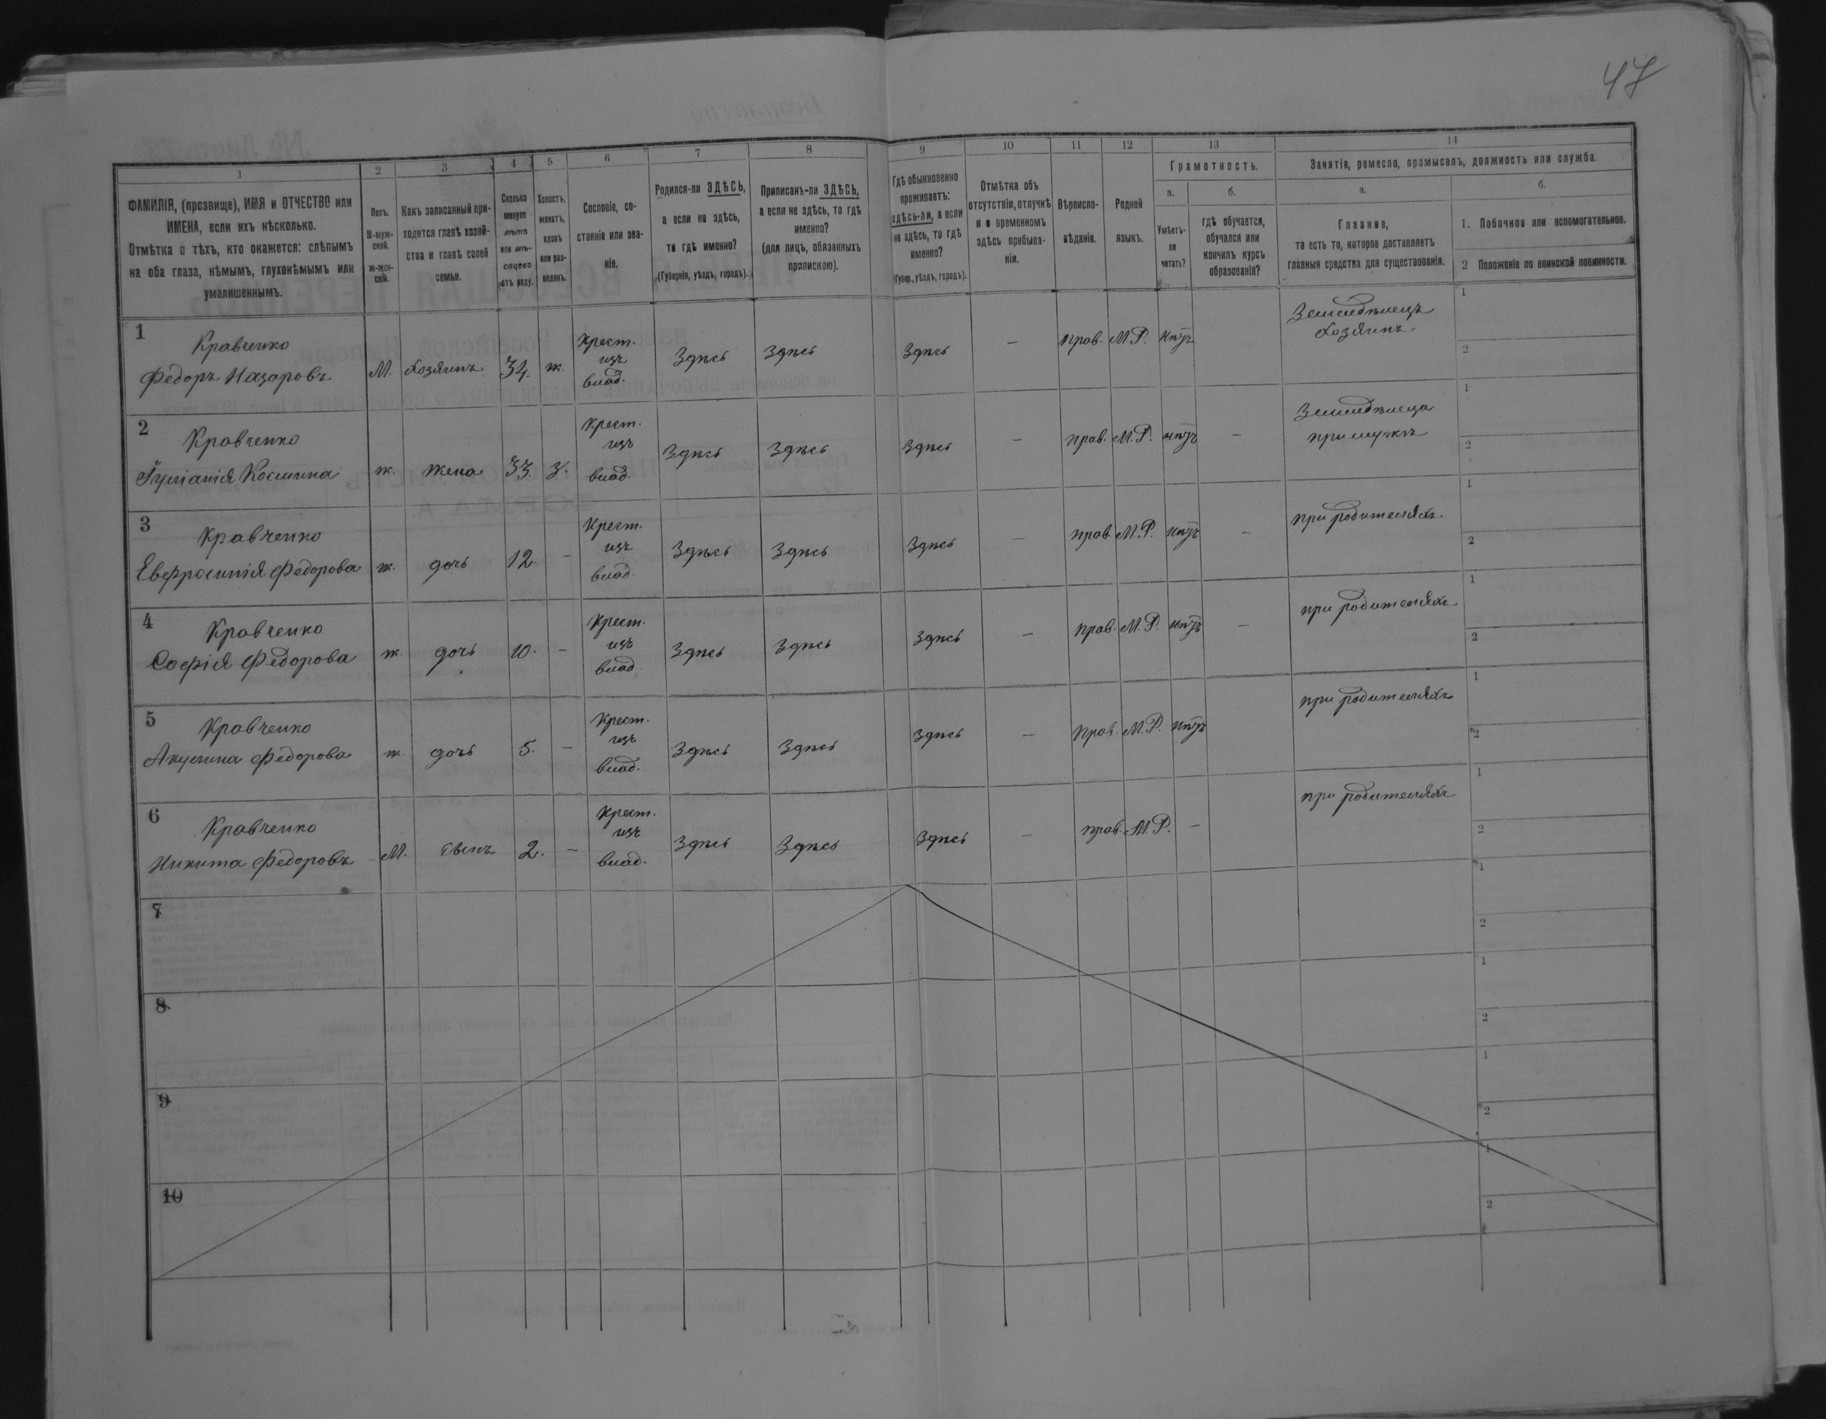 47
1 2 3 4 5 6 7 8 9 10 11 12 13 14
ФАМИЛІЯ, (прозвище), ИМЯ и ОТЧЕСТВО или ИМЕНА, если ихъ нѣсколько.
Отмѣтка о тѣхъ, кто окажется: слѣпымъ на оба глаза, нѣмымъ, глухонѣмымъ или умалишеннымъ.
Полъ.
М-мужской.
Ж-женскій.
Какъ записанный приходится главѣ хозяйства и главѣ своей семьи.
Сколько минуло лѣтъ или мѣсяцевъ отъ роду.
Холостъ, женатъ, вдовъ или разведенъ.
Сословіе, состояніе или званіе.
Родился-ли ЗДѢСЬ, а если не здѣсь, то гдѣ именно?
(Губернія, уѣздъ, городъ).
Приписанъ-ли ЗДѢСЬ, а если не здѣсь, то гдѣ именно?
(для лицъ, обязанныхъ припискою).
Гдѣ обыкновенно проживаетъ: здѣсь-ли, а если не здѣсь, то гдѣ именно?
(Губер., уѣздъ, городъ).
Отмѣтка объ отсутствіи, отлучкѣ и о временномъ здѣсь пребываніи.
Вѣроисповѣданіе.
Родной языкъ.
Грамотность.
а.
Умѣетъ-ли читать?
б.
гдѣ обучается, обучался или кончилъ курсъ образованія?
Занятія, ремесло, промыселъ, должность или служба.
а.
Главное,
то есть то, которое доставляетъ главныя средства для существованія.
б.
1. Побочное или вспомогательное.
2 Положеніе по воинской повинности.
1 Кравченко Федоръ Назаровъ М. Хозяинъ 34. ж. Крест. изъ влад. Здѣсь Здѣсь Здѣсь — прав. М.Р. нѣтъ Земледѣлецъ хозяинъ 1 2
2 Кравченко Іуліанія Космина ж. жена 33. з. Крест. изъ влад. Здѣсь Здѣсь Здѣсь — прав. М.Р. нѣтъ — Земледѣлица при мужѣ 1 2
3 Кравченко Евфросинія Федорова ж. дочь 12. — Крест. изъ влад. Здѣсь Здѣсь Здѣсь — прав. М.Р. нѣтъ — при родителяхъ 1 2
4 Кравченко Софія Федорова ж. дочь 10. — Крест. изъ влад. Здѣсь Здѣсь Здѣсь — прав. М.Р. нѣтъ — при родителяхъ 1 2
5 Кравченко Акулина Федорова ж. дочь 5. — Крест. изъ влад. Здѣсь Здѣсь Здѣсь — Прав. М.Р. нѣтъ при родителяхъ 1 2
6 Кравченко Никита Федоровъ М. сынъ 2. — Крест. изъ влад. Здѣсь Здѣсь Здѣсь — прав. М.Р. — при родителяхъ 1 2
7 1 2
8 1 2
9 1 2
10 1 2